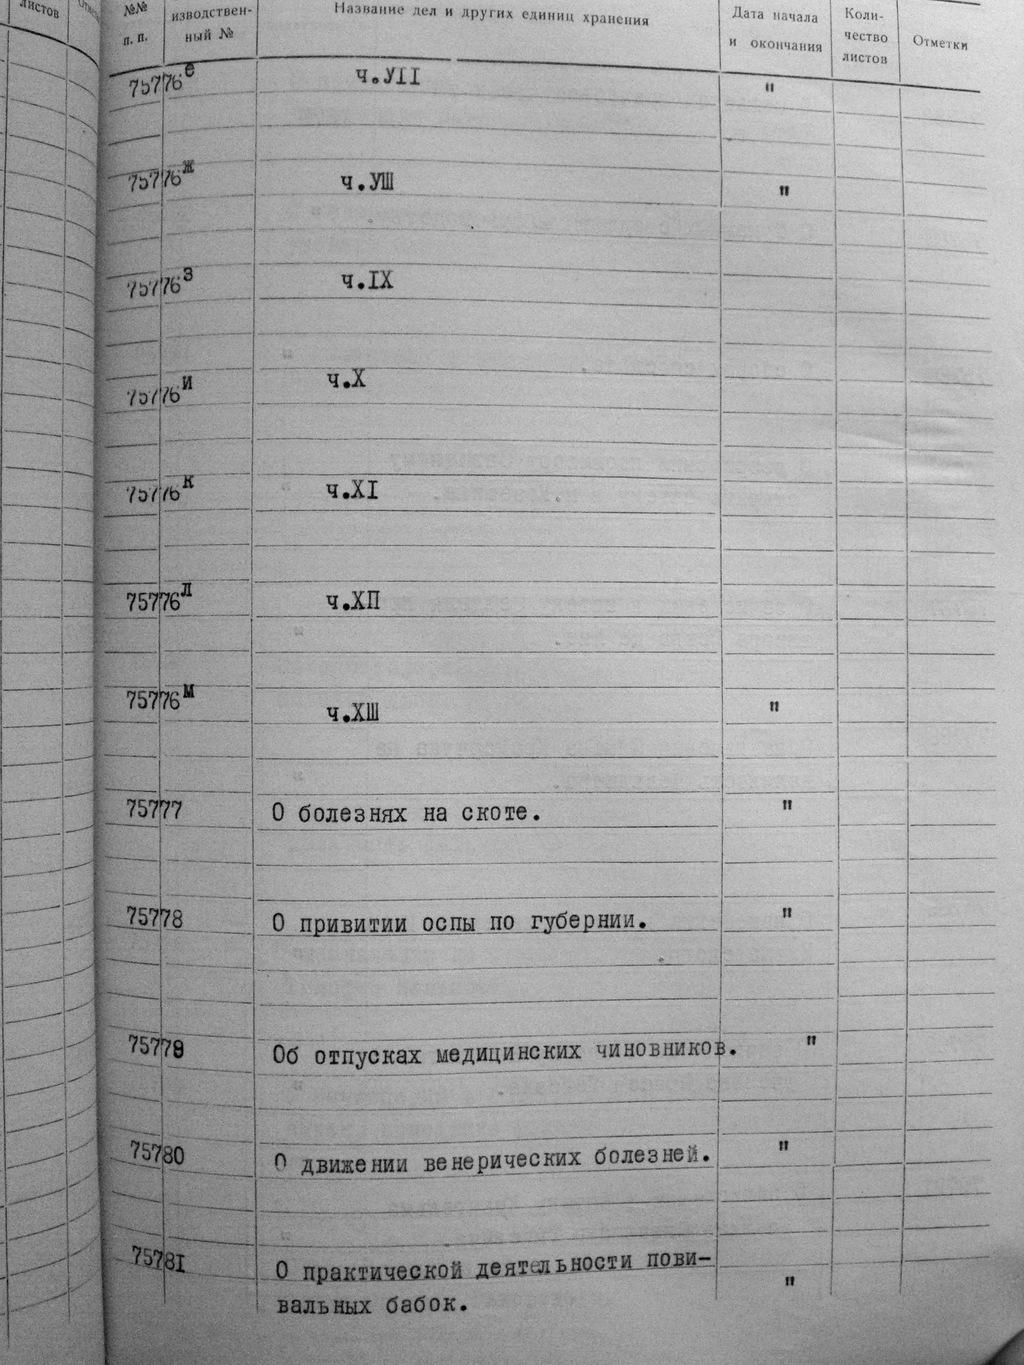 листов
№№
п. п.
изводствен-
ный №
Название дел и других единиц хранения
Дата начала
и окончания
Коли-
чество
листов
Отметки
75776е ч.УІІ "
75776ж ч.УШ "
75776з ч.ІХ
75776и ч.Х
75776к ч.ХІ
75776л ч.ХП
75776м ч.ХШ "
75777 О болезнях на скоте. "
75778 О привитии оспы по губернии. "
75779 Об отпусках медицинских чиновников. "
75780 О движении венерических болезней. "
75781 О практической деятельности пови-
вальных бабок. "